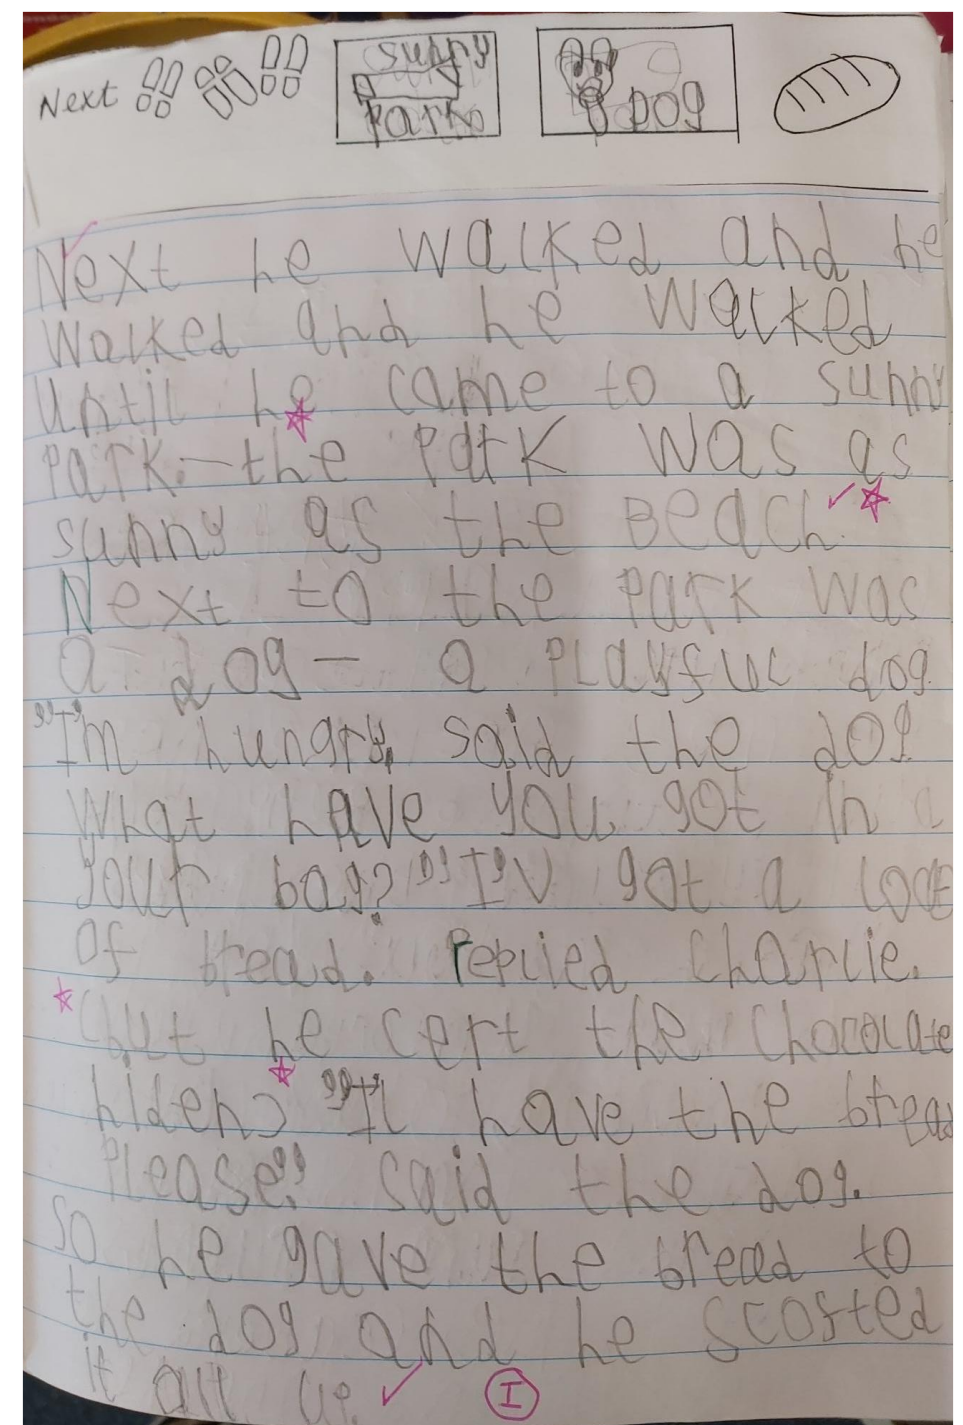 Next
sunny
Park
Dog
Next he walked and he
walked and he walked
until he came to a sunny
Park. the Park was as
sunny as the Beach.
Next to the Park was
a dog - a Playful dog.
"I'm hungry, said the dog.
What have you got in a
your bag?" "I'v got a loaf
of bread. replied charlie.
(but he cert the chocolate
hiden) "I'l have the bread
Please." said the dog.
so he gave the bread to
the dog and he scosfed
it all up.
I